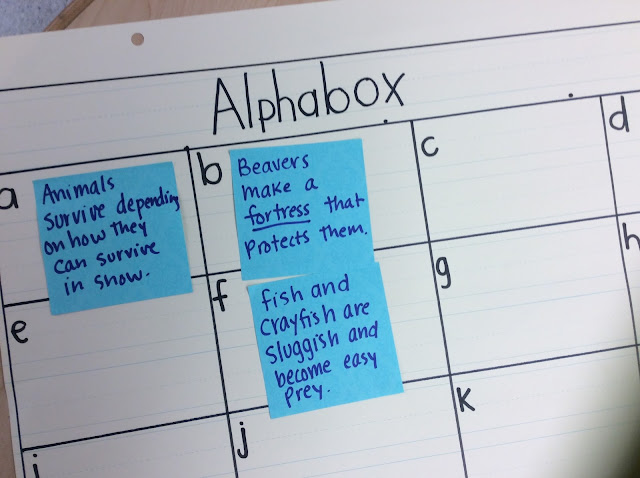 Alphabox
a
Animals
survive depending
on how they
can survive
in snow.
b
Beavers
make a
fortress that
protects them.
c
d
e
f
fish and
crayfish are
sluggish and
become easy
prey.
g
h
i
j
k